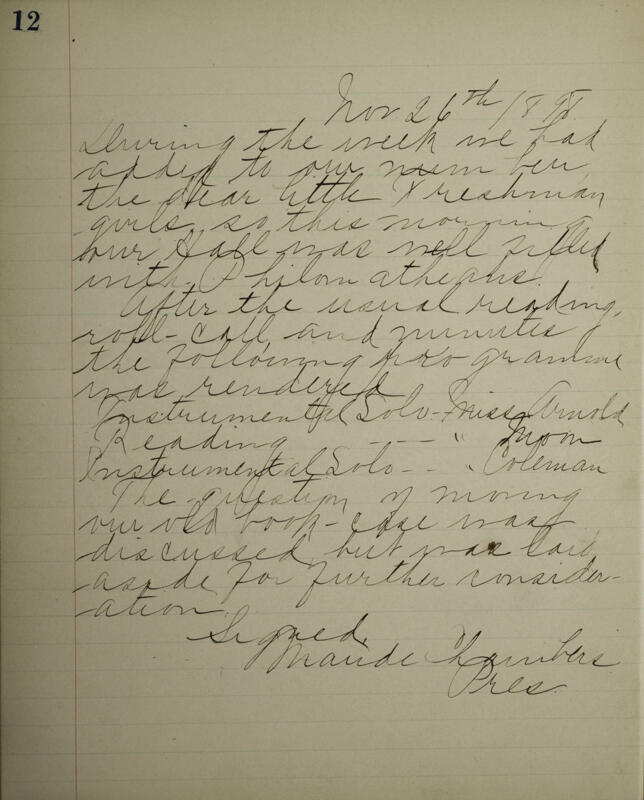 12
Nov 26th 1898.
During the week we had
added to our num ber,
the dear little Freshman
girls, so this morning
our Hall was well filled
with Philomatheans.
After the usual reading,
roll-call, and minutes
the following programme
was rendered
Instrumental Solo - Miss Arnold
Reading - - - - " Moon
Instrumental Solo - - " Coleman
The question of moving
our old book-case was
discussed, but was laid
aside for further consider-
-ation.
Signed,
Maude Chambers
Pres.